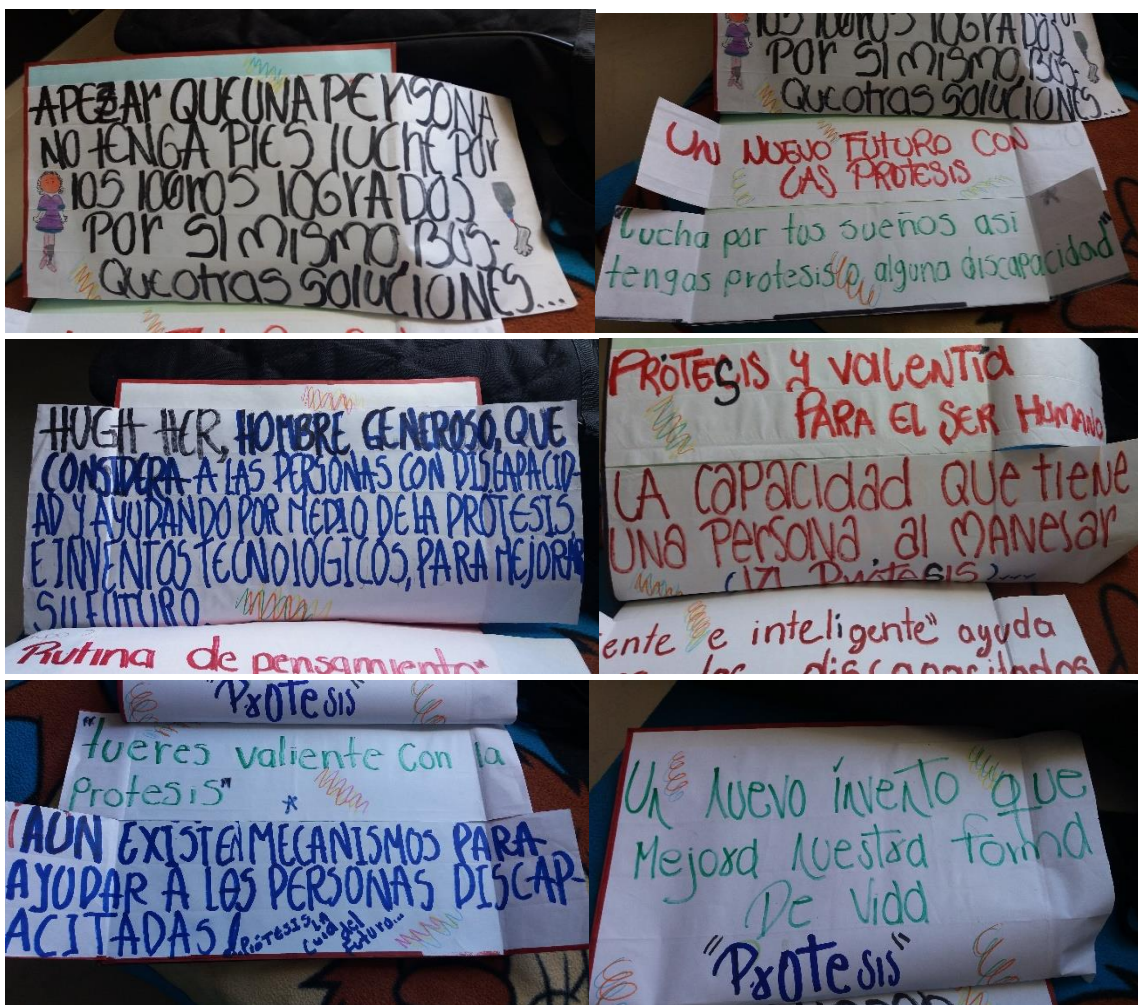 APEZAR QUE UNA PERSONA
NO TENGA PIES LUCHE POR
LOS LOGROS LOGRADOS
POR SI MISMO, BUS-
QUE OTRAS SOLUCIONES...
LOS LOGROS LOGRADOS
POR SI MISMO, BUS-
QUE OTRAS SOLUCIONES...
UN NUEVO FUTURO CON
LAS PROTESIS
"Lucha por tus sueños asi
tengas protesis o alguna discapacidad"
HUGH HER, HOMBRE GENEROSO, QUE
CONSIDERA A LAS PERSONAS CON DISCAPACID-
AD Y AYUDANDO POR MEDIO DE LA PRÓTESIS
E INVENTOS TECNOLÓGICOS, PARA MEJORAR
SU FUTURO
Rutina de pensamiento"
PRÓTESIS y valentía
PARA EL SER HUMANO
LA capacidad QUE tiene
UNA PERSONA al MANESAR
(LA PRÓTESIS)...
ente e inteligente" ayuda
los discapacitados
"Protesis"
"tueres valiente con la
Protesis"
¡AUN EXISTEN MECANISMOS PARA
AYUDAR A LAS PERSONAS DISCAP-
ACITADAS!
PRÓTESIS, la
guia del
futuro...
Un nuevo invento que
Mejora nuestra forma
De vida
"Protesis"